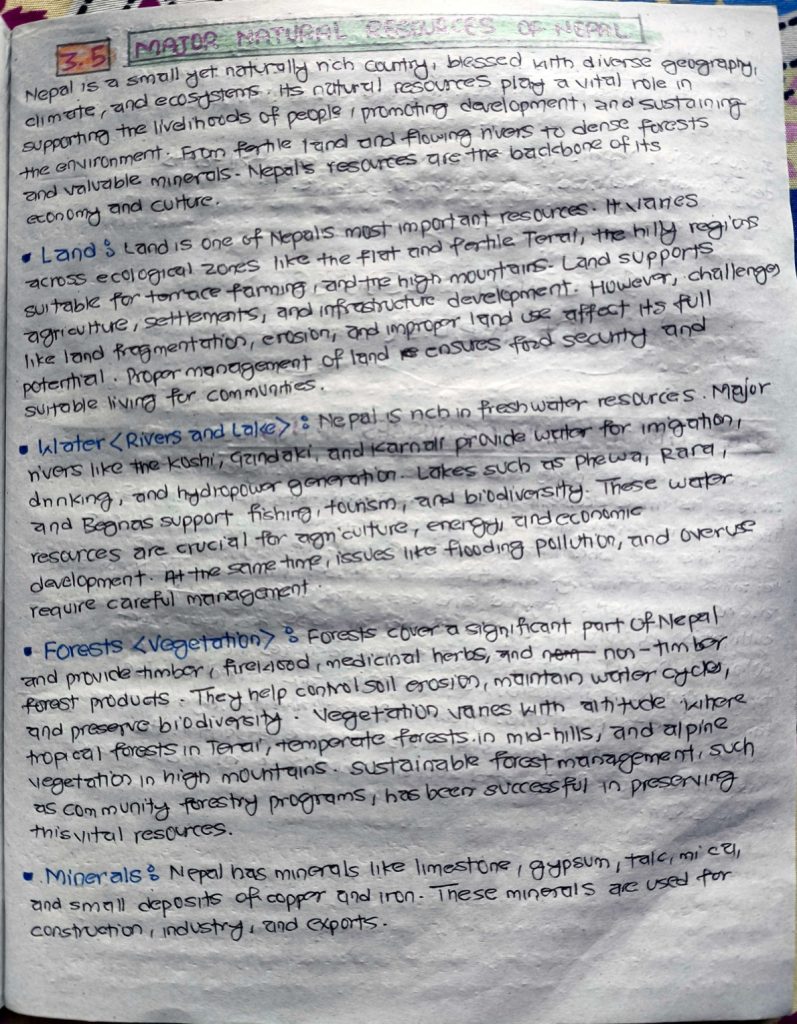 3.5 MAJOR NATURAL RESOURCES OF NEPAL
Nepal is a small yet naturally rich country, blessed with diverse geography,
climate, and ecosystems. Its natural resources play a vital role in
supporting the livelihoods of people, promoting development, and sustaining
the environment. From fertile land and flowing rivers to dense forests
and valuable minerals. Nepal's resources are the backbone of its
economy and culture.
• Land : Land is one of Nepals most important resources. It varies
across ecological zones like the flat and fertile Terai, the hilly regions
suitable for terrace farming, and the high mountains. Land supports
agriculture, settlements, and infrastructure development. However, challenges
like land fragmentation, erosion, and improper land use affect its full
potential. Proper management of land ensures food security and
suitable living for communities.
• Water <Rivers and Lake> : Nepal is rich in freshwater resources. Major
rivers like the Koshi, Gandaki, and Karnali provide water for irrigation,
drinking, and hydropower generation. Lakes such as Phewa, Rara,
and Begnas support fishing, tourism, and biodiversity. These water
resources are crucial for agriculture, energy, and economic
development. At the same time, issues like flooding pollution, and overuse
require careful management.
• Forests <Vegetation> : Forests cover a significant part of Nepal
and provide timber, firewood, medicinal herbs, and non-timber
forest products. They help control soil erosion, maintain water cycles,
and preserve biodiversity. Vegetation varies with altitude where
tropical forests in Terai, temperate forests in mid-hills, and alpine
vegetation in high mountains. Sustainable forest management, such
as community forestry programs, has been successful in preserving
this vital resources.
• Minerals : Nepal has minerals like limestone, gypsum, talc, mica,
and small deposits of copper and iron. These minerals are used for
construction, industry, and exports.